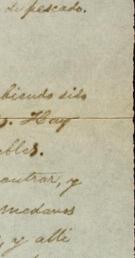 de pescado.
biendo sido
s. Hay
ables.
contrar, y
medanos
, y allí